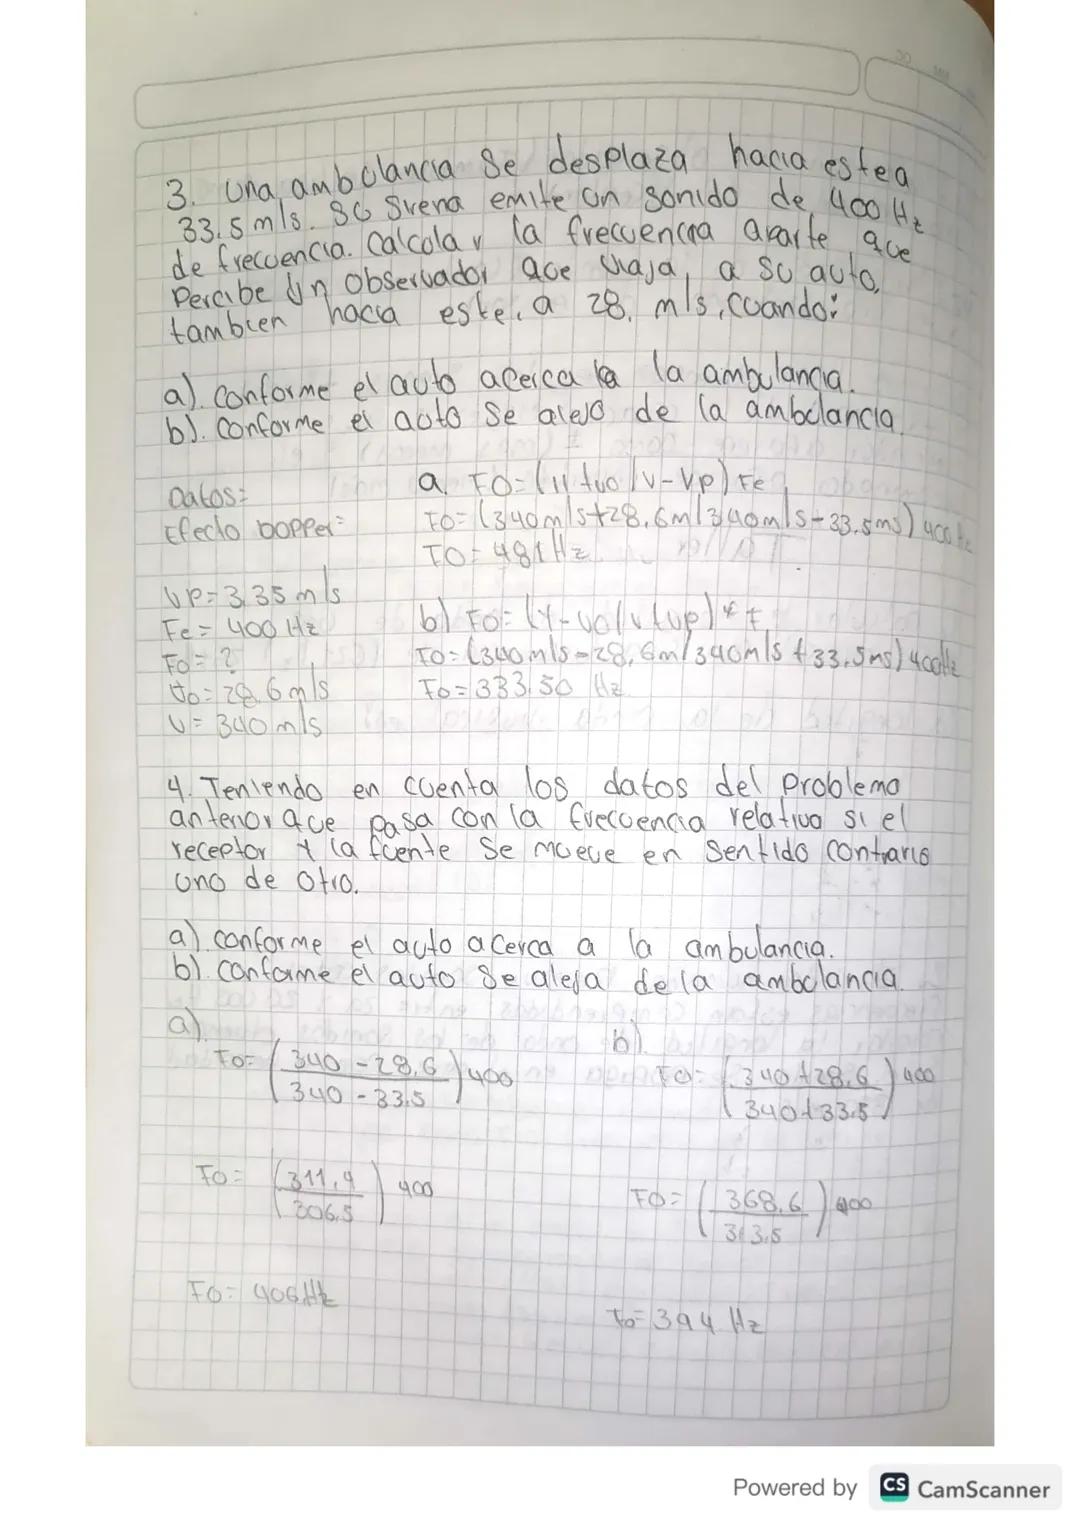 3. Una ambulancia Se desplaza hacia este a
33.5 m/s. SU Sirena emite un sonido de 400 Hz
de frecuencia. Calcular la frecuencia aparte que
Percibe Un Observador que viaja, a su auto,
tambien hacia este, a 28. m/s, cuando:
a). conforme el auto acerca a la ambulancia.
b). conforme el auto Se alejo de la ambulancia
Datos:
Efecto Dopper=
VP= 3.35 m/s
Fe= 400 Hz
Fo= ?
Vo= 28.6 m/s
V= 340 m/s
a. FO=(V+vo/v-Vp) Fe
FO= (340m/s+28,6m/340m/s-33.5ms) 400Hz
FO= 481Hz
b) FO= (V-vo/v+vp)* f
FO= (340m/s-28,6m/340m/s+33.5ms) 400Hz
Fo= 333.50 Hz
4. Teniendo en cuenta los datos del problema
anterior que pasa con la frecuencia relativa si el
receptor y la fuente Se mueve en Sentido contrario
uno de otro.
a) conforme el auto acerca a la ambulancia.
b). conforme el auto Se aleja de la ambulancia.
a).
FO= (340 - 28,6 / 340 - 33.5) 400
FO= (311,4 / 306.5) 400
FO= 406Hz
b).
FO= (340+28,6 / 340+33.5) 400
FO= (368,6 / 373.5) 400
Fo= 394 Hz
Powered by CS CamScanner